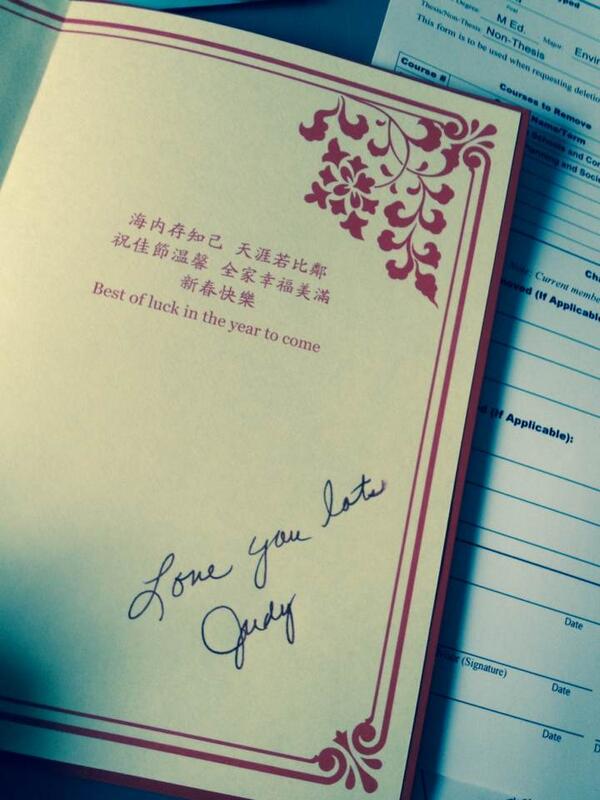 海內存知己 天涯若比鄰
祝佳節溫馨 全家幸福美滿
新春快樂
Best of luck in the year to come
Love you lots
Judy
Degree:
M Ed.
Major:
Envir
Thesis/Non-Thesis
Non-Thesis
This form is to be used when requesting deletio
Course #
Courses to Remove
Name/Term
Schools and Co
Planning and Socie
Note: Current membe
(If Applicable
(If Applicable):
Date
(Signature)
Date
Date